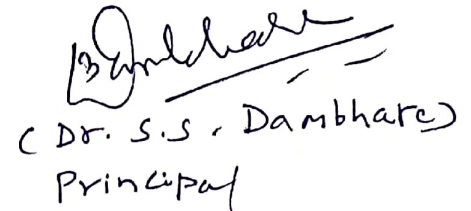 (Dr. S.S. Dambhare)
Principal